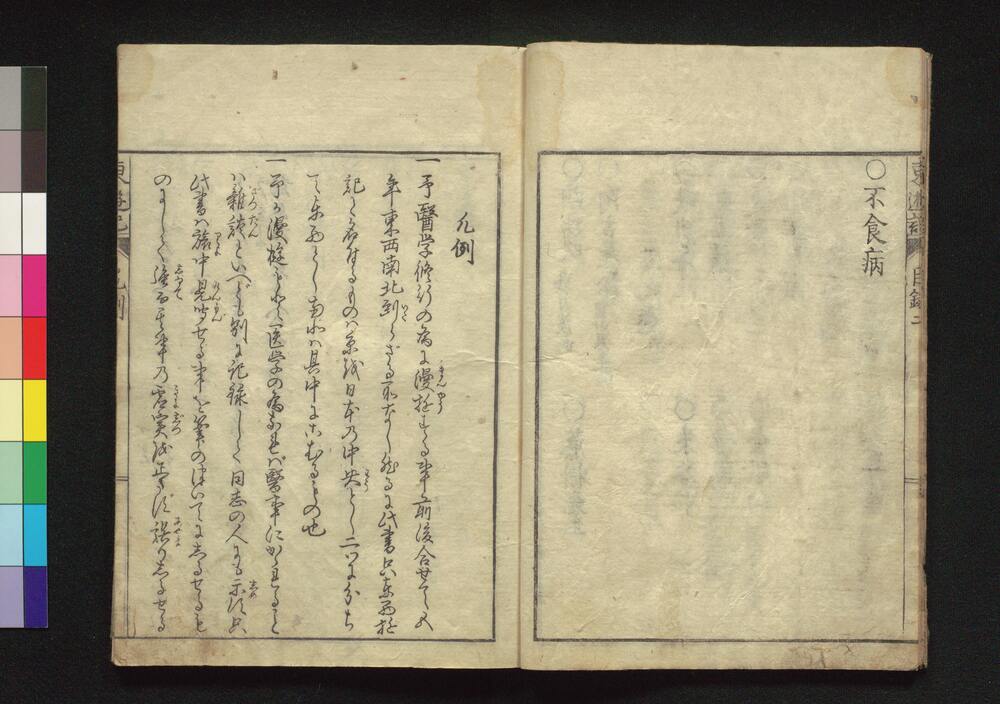 ○不食病
東遊記
目録二
凡例
一予醫学修行の為に漫遊する事前後合せて五
年東西南北到らざる所なし然るに此書只東西遊
記と名付るものは京を以日本の中央として二つに分ち
て東西とし南北は其中にこむるもの也
一予が漫遊もと医学の為なれば醫事にかゝれること
は雑談といへども別に記録して同志の人にも示す只
此書は旅中見聞せる事を筆のついでにしるせるも
のにして強而其事の虚実を正さず誤りしるせる
東遊記
凡例